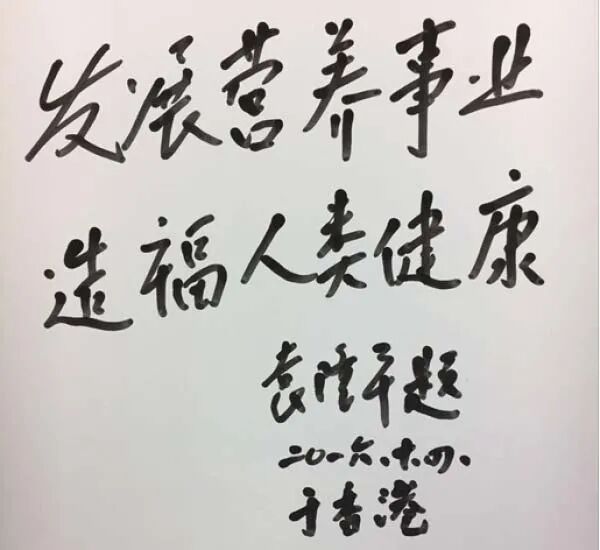 发展营养事业
造福人类健康
袁隆平题
二〇一六.十.四.
于香港